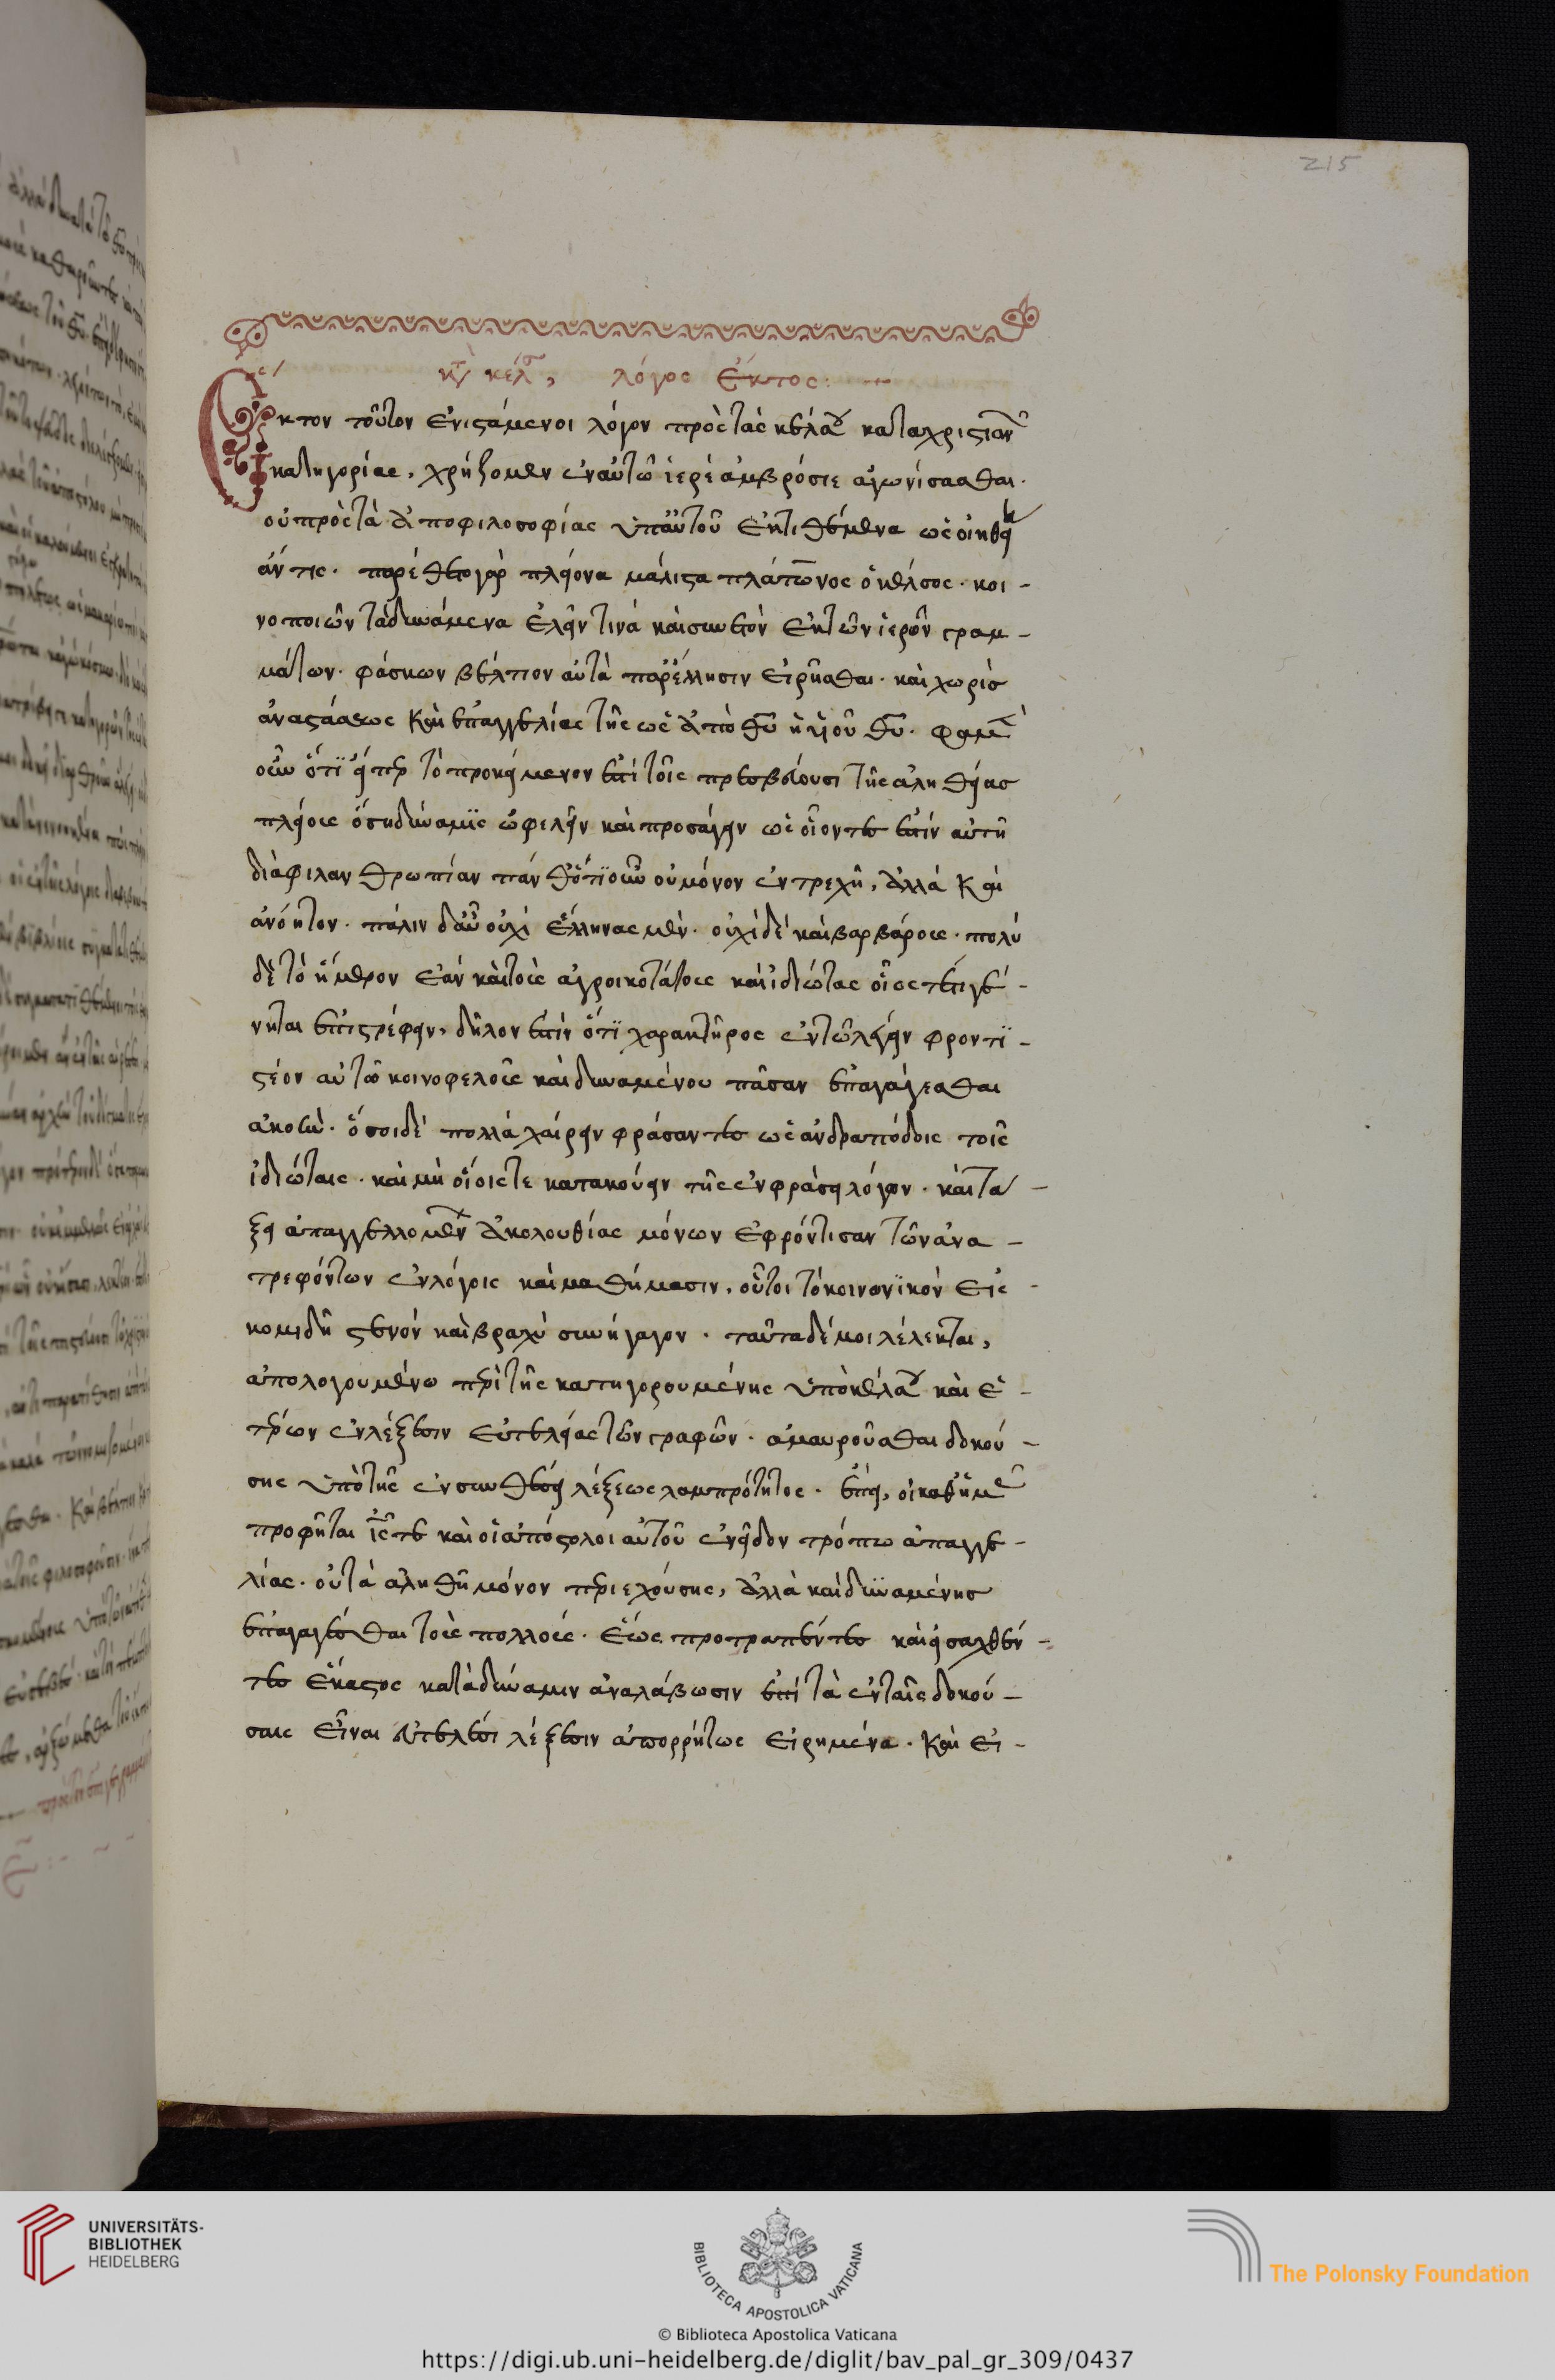 215
κτ κελσ, λόγος ἕκτος:
Ἕκτον τοῦτον ἐνιστάμενοι λόγον πρὸς τὰς κέλσου κατὰ χριστιανῶν
κατηγορίας, χρήζομεν ἐν αὐτῶ ἱερὲ ἀμβρόσιε ἀγωνίσασθαι.
οὐ πρὸς τὰ ἀπὸ φιλοσοφίας ὑπ' αὐτοῦ ἐκτιθέμενα ὡς οἰηθείη
ἄν τις. παρέθετο γὰρ πλείονα μάλιστα πλάτωνος ὁ κέλσος. κοι-
νοποιῶν τὰ δυνάμενα ἑλεῖν τινὰ καὶ συνετὸν ἐκ τῶν ἱερῶν γραμ-
μάτων. φάσκων βέλτιον αὐτὰ παρ' ἕλλησιν εἰρῆσθαι. καὶ χωρὶς
ἀνατάσεως καὶ ἐπαγγελίας τῆς ὡς ἀπὸ θυ ἢ υἱοῦ θυ. φαμὲν
οὖν ὅτι εἴπερ τὸ προκείμενον ἐστὶ τοῖς πρεσβεύουσι τῆς ἀληθείας
πλείους ὅση δύναμις ὠφελεῖν καὶ προσάγειν ὡς οἷόντε ἐστὶν αὐτῆ
διὰ φιλανθρωπίαν πάνθ' ὅτιοῦν οὐ μόνον ἐντρεχῆ, ἀλλὰ καὶ
ἀνόητον. πάλιν δ' αὖ οὐχὶ ἕλληνας μὲν. οὐχὶ δὲ καὶ βαρβάρους. πολὺ
δὲ τὸ ἥμερον ἐὰν καὶ τοὺς ἀγροικοτάτους καὶ ἰδιώτας οἷός τε τις γέ-
νηται ἐπιστρέφειν, δῆλον ἐστὶν ὅτι χαρακτῆρος ἐν τῶ λέγειν φροντι-
στέον αὐτῶ κοινωφελοῦς καὶ δυναμένου πᾶσαν ἐπαγάγεσθαι
ἀκοὴν. ὅσοι δὲ πολλὰ χαίρειν φράσαντες ὡς ἀνδραπόδοις τοῖς
ἰδιώταις. καὶ μὴ οἵοις τε κατακούειν τῆς ἐν φράσει λόγων. καὶ τά-
ξει ἀπαγγελλομένων ἀκολουθίας μόνων ἐφρόντισαν τῶν ἀνα-
τρεφόντων ἐν λόγοις καὶ μαθήμασιν, οὗτοι τὸ κοινωνικὸν εἰς
κομιδῆ στενὸν καὶ βραχὺ συνήγαγον. ταῦτα δέ μοι λέλεκται,
ἀπολογουμένω πρὸς τῆς κατηγορουμένης ὑπὸ κέλσου καὶ ἑ-
τέρων ἐν λέξεσιν εὐτελείας τῶν γραφῶν. ἀμαυροῦσθαι δοκού-
σης ὑπὸ τῆς ἐν συνθέσει λέξεως λαμπρότητος. ἐπεὶ, οἱ καθ' ἡμᾶς
προφῆται ἰς τε καὶ οἱ ἀπόστολοι αὐτοῦ ἐνεῖδον τρόπω ἀπαγγε-
λίας. οὐ τὰ ἀληθῆ μόνον περιεχούσης, ἀλλὰ καὶ δυναμένης
ἐπαγαγέσθαι τοὺς πολλούς. ἕως προτραπέντες καὶ εἰσαχθέν-
τες ἕκαστος κατὰ δύναμιν ἀναλάβωσιν ἐπὶ τὰ ἐν ταῖς δοκού-
σαις εἶναι εὐτελέσι λέξεσιν ἀπορρήτως εἰρημένα. καὶ εἰ-
UNIVERSITÄTS-
BIBLIOTHEK
HEIDELBERG
BIBLIOTECA APOSTOLICA VATICANA
The Polonsky Foundation
© Biblioteca Apostolica Vaticana
https://digi.ub.uni-heidelberg.de/diglit/bav_pal_gr_309/0437